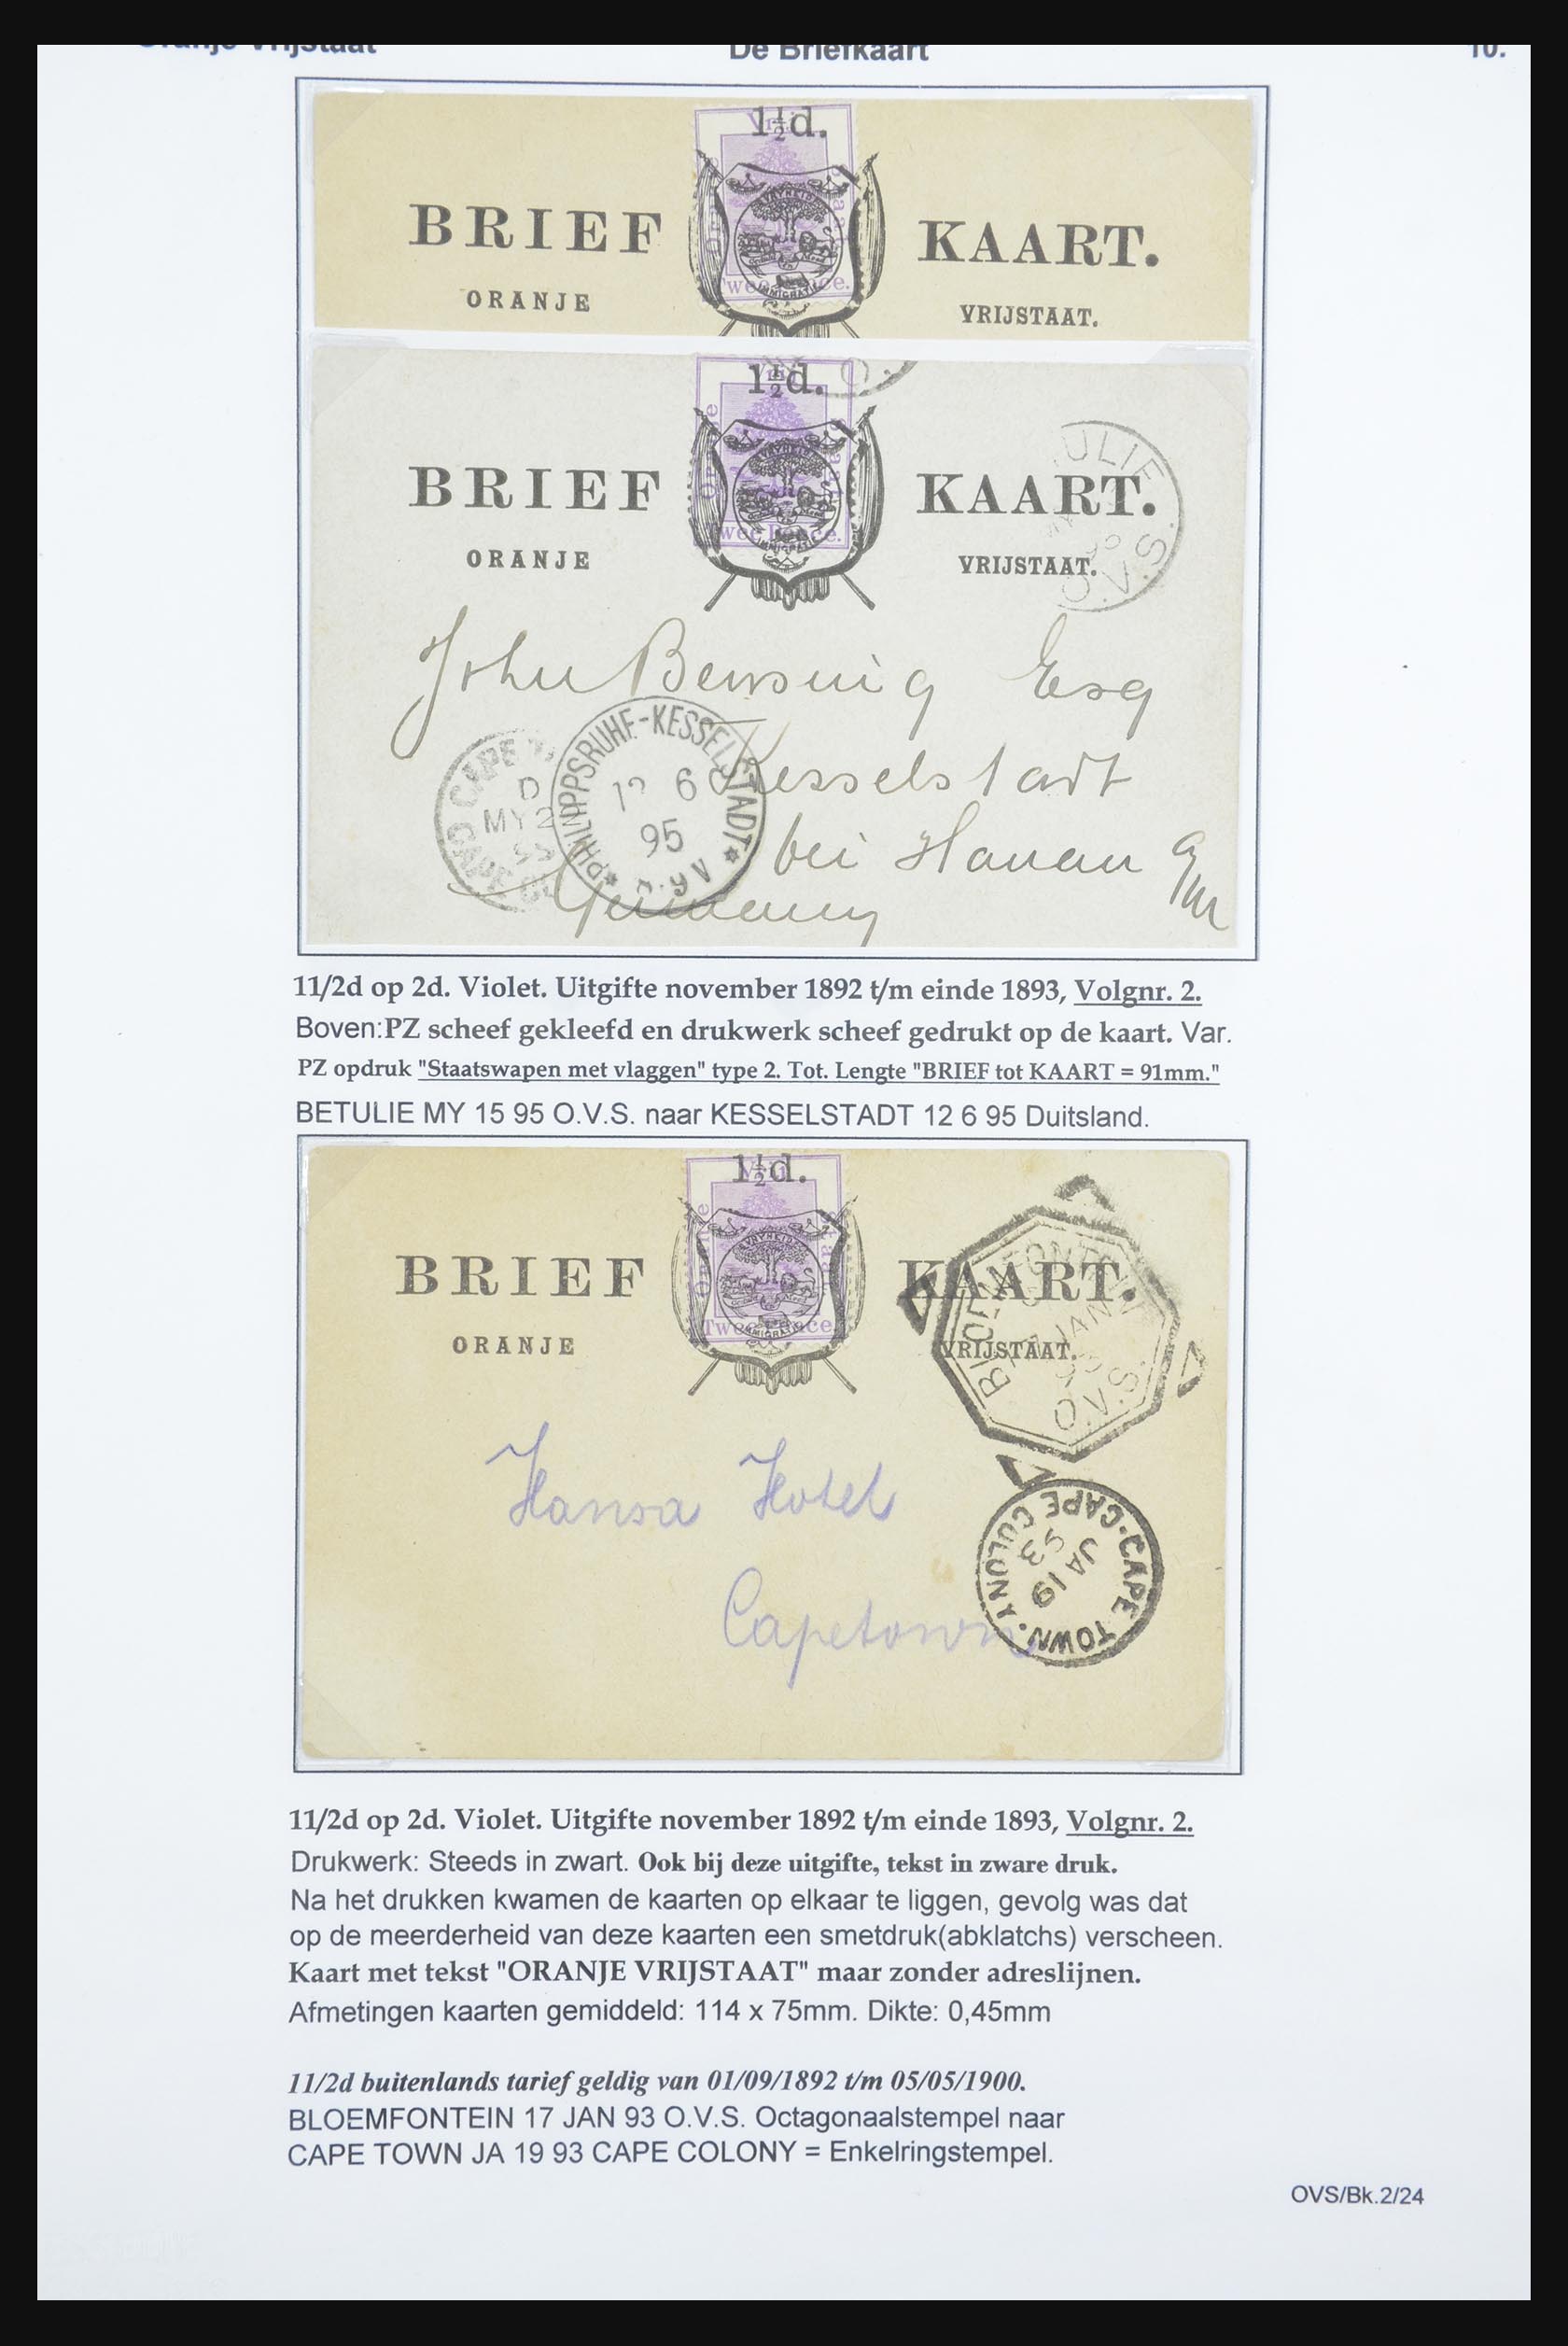 Oranje Vrijstaat De Briefkaart 10.
1½d.
BRIEF KAART.
ORANJE VRIJSTAAT.
VRYHEID
IMMIGRATIE
1½d.
BRIEF KAART.
ORANJE VRIJSTAAT.
IMMIGRATIE
Twee Pence.
ULIE
O.V.S.
John Bensing Esq
Kesselstadt
bei Hanau
Germany
PHILIPPSRUHE-KESSELSTADT
6
95
CAPE
D
MY 2
11/2d op 2d. Violet. Uitgifte november 1892 t/m einde 1893, Volgnr. 2.
Boven:PZ scheef gekleefd en drukwerk scheef gedrukt op de kaart. Var.
PZ opdruk "Staatswapen met vlaggen" type 2. Tot. Lengte "BRIEF tot KAART = 91mm."
BETULIE MY 15 95 O.V.S. naar KESSELSTADT 12 6 95 Duitsland.
1½d.
BRIEF KAART.
ORANJE VRIJSTAAT.
VRYHEID
IMMIGRATIE
BLOEMFONTEIN
17 JAN
93
O.V.S.
Hansa Hotel
Capetown
CAPE TOWN. CAPE COLONY
JA 19
93
11/2d op 2d. Violet. Uitgifte november 1892 t/m einde 1893, Volgnr. 2.
Drukwerk: Steeds in zwart. Ook bij deze uitgifte, tekst in zware druk.
Na het drukken kwamen de kaarten op elkaar te liggen, gevolg was dat
op de meerderheid van deze kaarten een smetdruk(abklatchs) verscheen.
Kaart met tekst "ORANJE VRIJSTAAT" maar zonder adreslijnen.
Afmetingen kaarten gemiddeld: 114 x 75mm. Dikte: 0,45mm
11/2d buitenlands tarief geldig van 01/09/1892 t/m 05/05/1900.
BLOEMFONTEIN 17 JAN 93 O.V.S. Octagonaalstempel naar
CAPE TOWN JA 19 93 CAPE COLONY = Enkelringstempel.
OVS/Bk.2/24